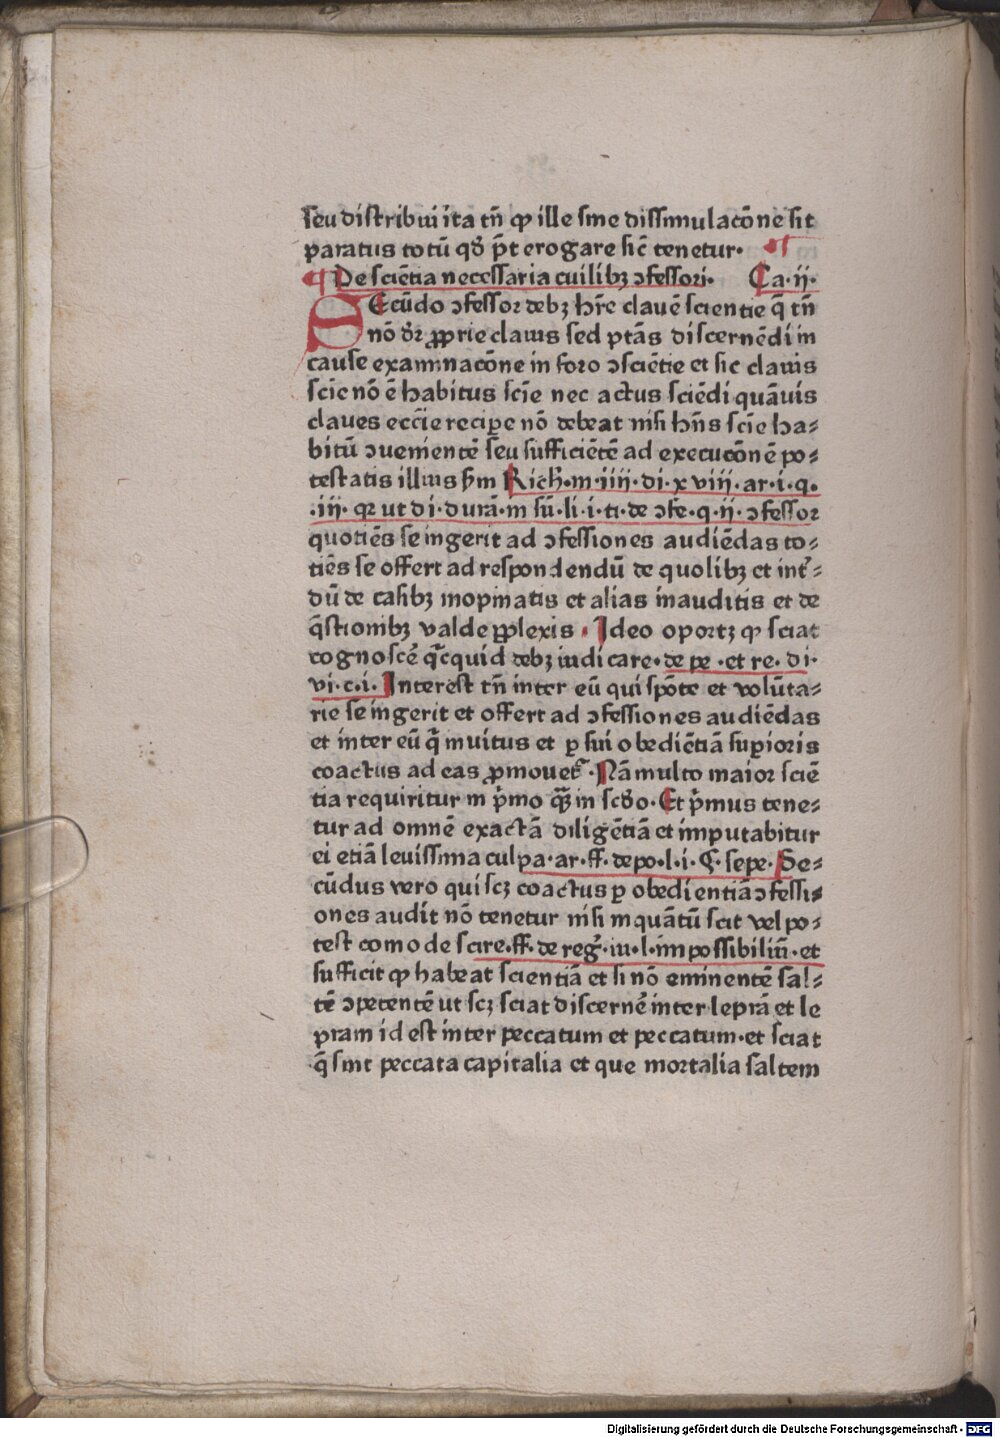 seu distribui ita tn̄ ꝙ ille sine dissimulacōne sit
paratus totū qd̄ p̄t erogare sic̄ tenetur.
De sciētia necessaria cuilibꝫ ↄfessori. Ca.ii.
SEcūdo ↄfessor debꝫ hr̄e clauē scientie q̄ tn̄
nō dr̄ ꝓprie clauis sed ptās discernēdi in
cause examinacōne in foro ↄsciētie et sic clauis
scīe nō ē habitus scīe nec actus sciēdi quāuis
claues eccīe recipe nō debeat nisi hn̄s scīe ha⸗
bitū ↄuenientē seu sufficiētē ad execucōnē po⸗
testatis illius ẜm Rich.in.iiii.di.xviii.ar.i.q.
.iii. qꝛ ut di.durā.in sū.li.i.ti.de ↄfe.q.ii.ↄfessor
quotiēs se ingerit ad ↄfessiones audiēdas to⸗
tiēs se offert ad respondendū de quolibꝫ et int̄⸗
dū de casibꝫ inopinatis et alias inauditis et de
q̄stionibꝫ valde ꝑplexis. Ideo oportꝫ ꝙ sciat
cognoscē q̄cquid debꝫ iudicare.de pe.et re.di.
vi.c.i. Interest tn̄ inter eū qui spōte et volūta⸗
rie se ingerit et offert ad ↄfessiones audiēdas
et inter eū q̄ inuitus et ꝑ sui obediētiā supioris
coactus ad eas ꝓmouet᷑. Nā multo maior sciē
tia requiritur in p̄mo q̄ꝫ in scd̄o. Et p̄mus tene⸗
tur ad omnē exactā diligētiā et imputabitur
ei etiā leuissima culpa.ar.ff.depo.l.i.§.sepe. Se⸗
cūdus vero qui scꝫ coactus ꝑ obedientiā ↄfessi⸗
ones audit nō tenetur nisi inquātū scit vel po⸗
test comode scire.ff.de reḡ.iu.l.impossibiliū.et
sufficit ꝙ habeat scientiā et si nō eminentē sal⸗
tē ↄpetentē ut scꝫ sciat discernē inter leprā et le
pram id est inter peccatum et peccatum.et sciat
q̄ sint peccata capitalia et que mortalia saltem
Digitalisierung gefördert durch die Deutsche Forschungsgemeinschaft - DFG